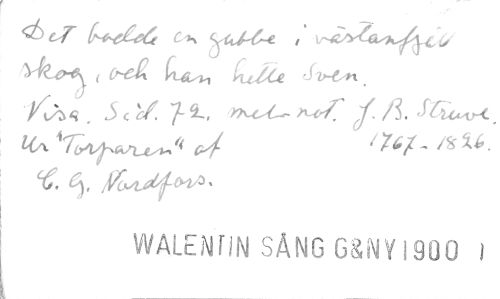 Det bodde en gubbe i västanfjäll
skog, och han hette Sven.
Visa. Sid. 72. mel. not. J. B. Struve.
Ur "Torparen" af 1767-1826.
C. G. Nordfors.
WALENTIN SÅNG G&NY 1900 1